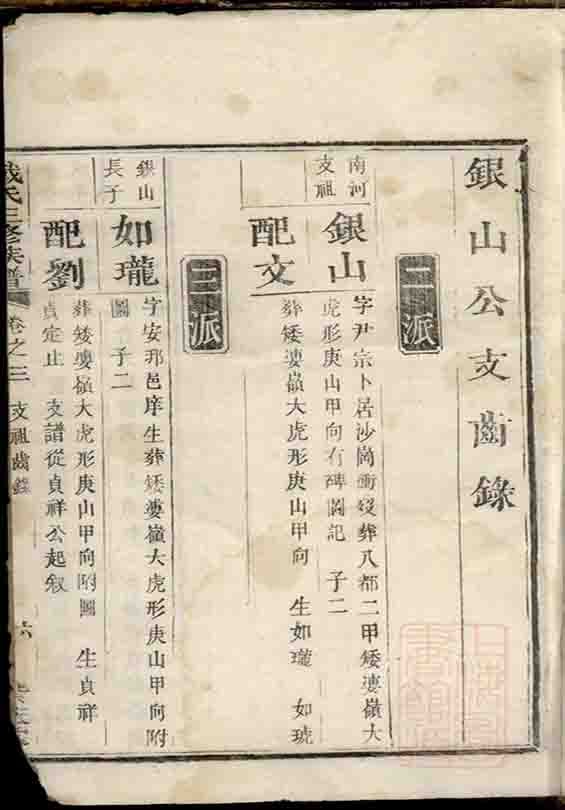 銀山公支齒錄
二派
南河
支祖
銀山
字尹宗卜居沙崗衝歿葬八都二甲矮婆嶺大
虎形庚山甲向有碑圖記 子二
配文
葬矮婆嶺大虎形庚山甲向 生如瓏 如琥
三派
銀山
長子
如瓏
字安邦邑庠生葬矮婆嶺大虎形庚山甲向附
圖 子二
配劉
葬矮婆嶺大虎形庚山甲向附圖 生貞祥
貞定止 支譜從貞祥公起敘
氏三修族譜 卷之三 支祖齒錄 六
上海圖書館藏